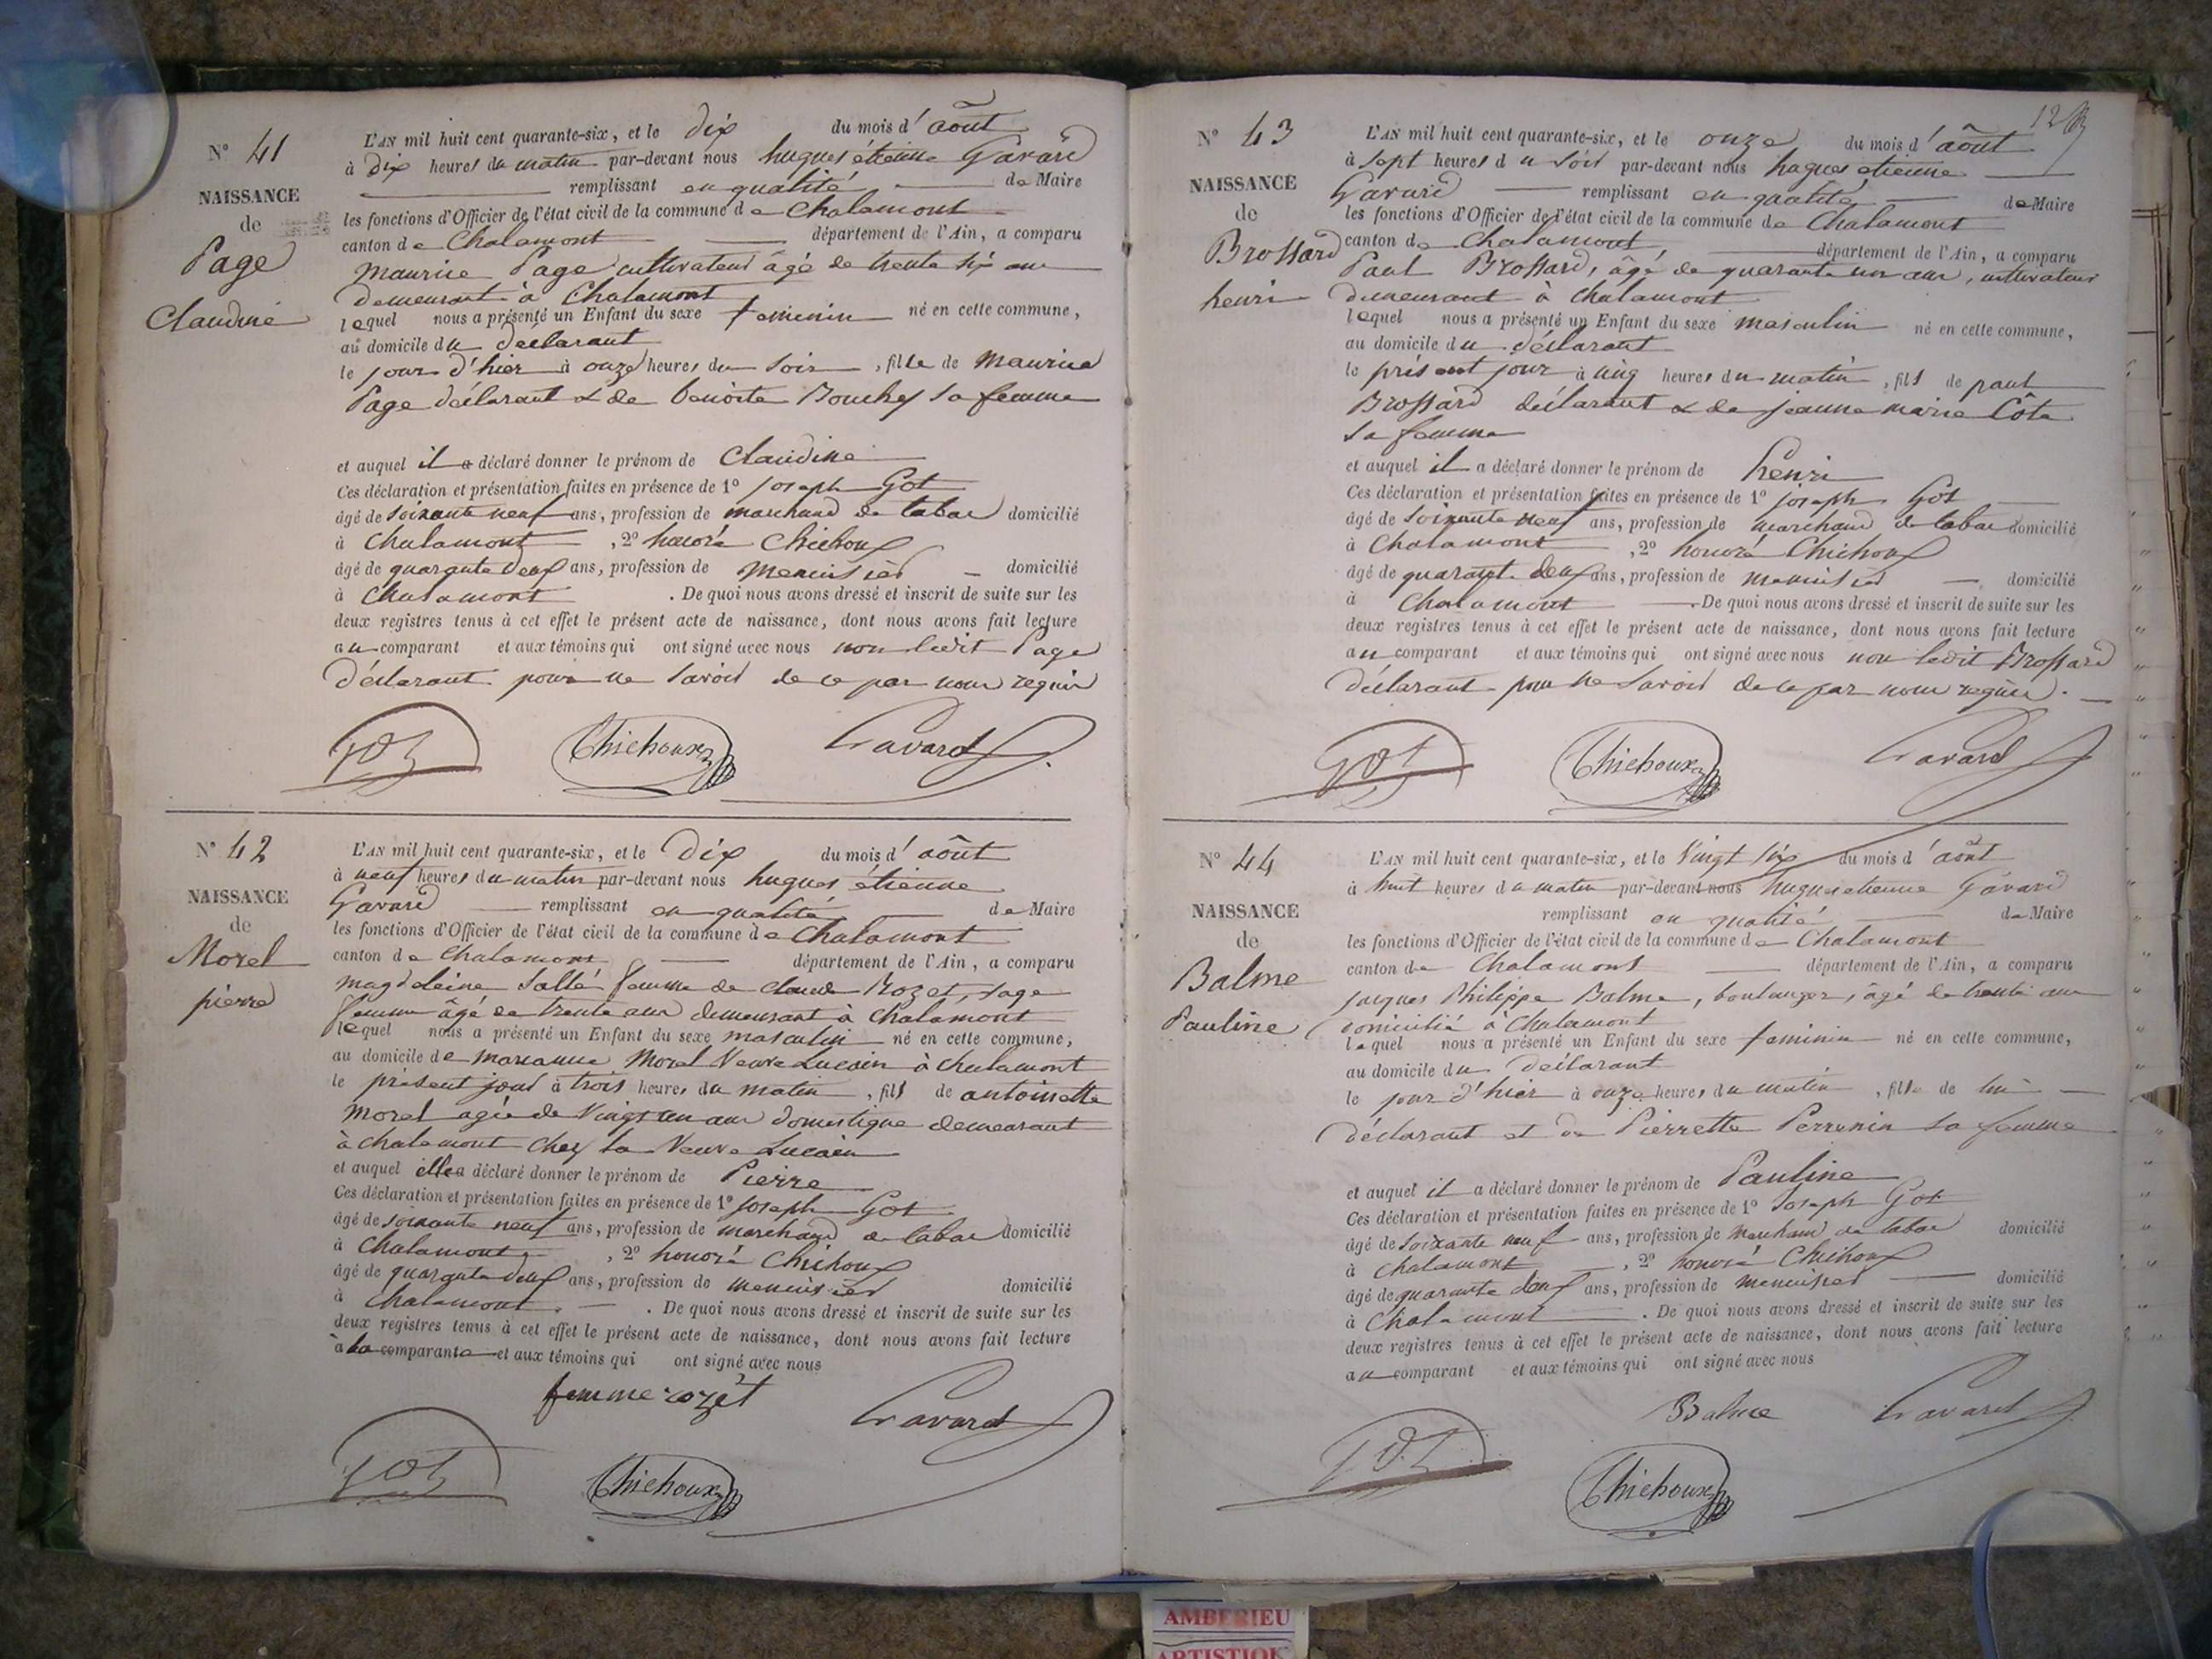 N° 41
NAISSANCE
de
Page
Claudine
L'AN mil huit cent quarante-six, et le dix du mois d'août
à dix heures du matin par-devant nous hugues étienne Gavard
remplissant en qualité de Maire
les fonctions d'Officier de l'état civil de la commune de Chalamont
canton de Chalamont département de l'Ain, a comparu
maurice Page cultivateur âgé de trente six ans
demeurant à Chalamont
lequel nous a présenté un Enfant du sexe feminin né en cette commune,
au domicile du déclarant
le jour d'hier à onze heures du soir, fille de maurice
Page déclarant & de benoite Bouchy sa femme
et auquel il a déclaré donner le prénom de Claudine
Ces déclaration et présentation faites en présence de 1° joseph Got
âgé de soixante neuf ans, profession de marchand de tabac domicilié
à Chalamont, 2° honoré Chichoux
âgé de quarante deux ans, profession de menuisier domicilié
à Chalamont. De quoi nous avons dressé et inscrit de suite sur les
deux registres tenus à cet effet le présent acte de naissance, dont nous avons fait lecture
au comparant et aux témoins qui ont signé avec nous non ledit Page
déclarant pour ne savoir de ce par nous requis
Got Chichoux Gavard
N° 42
NAISSANCE
de
Morel
pierre
L'AN mil huit cent quarante-six, et le Dix du mois d'août
à neuf heures du matin par-devant nous hugues étienne
Gavard remplissant en qualité de Maire
les fonctions d'Officier de l'état civil de la commune de Chalamont
canton de Chalamont département de l'Ain, a comparu
magdeleine Sallé femme de claude Rozet, sage
femme âgé de trente ans demeurant à Chalamont
lequel nous a présenté un Enfant du sexe masculin né en cette commune,
au domicile de marianne Morel Veuve Lucain à Chalamont
le présent jour à trois heures du matin, fils de antoinette
morel agée de Vingt un ans domestique demeurant
à chalamont chez la Veuve Lucain
et auquel elle a déclaré donner le prénom de Pierre
Ces déclaration et présentation faites en présence de 1° joseph Got
âgé de soixante neuf ans, profession de marchand de tabac domicilié
à Chalamont, 2° honoré Chichoux
âgé de quarante deux ans, profession de menuisier domicilié
à Chalamont. De quoi nous avons dressé et inscrit de suite sur les
deux registres tenus à cet effet le présent acte de naissance, dont nous avons fait lecture
à la comparante et aux témoins qui ont signé avec nous
femme rozet
Gavard
Got Chichoux
N° 43
NAISSANCE
de
Brossard
henri
L'AN mil huit cent quarante-six, et le onze du mois d'août
à sept heures du soir par-devant nous hugues etienne
Gavard remplissant en qualité de Maire
les fonctions d'Officier de l'état civil de la commune de Chalamont
canton de Chalamont département de l'Ain, a comparu
Paul Brossard, âgé de quarante un ans, cultivateur
demeurant à chalamont
lequel nous a présenté un Enfant du sexe masculin né en cette commune,
au domicile du déclarant
le présent jour à cinq heures du matin, fils de paul
Brossard déclarant & de jeanne marie Côte
sa femme
et auquel il a déclaré donner le prénom de henri
Ces déclaration et présentation faites en présence de 1° joseph Got
âgé de soixante neuf ans, profession de marchand de tabac domicilié
à Chalamont, 2° honoré Chichoux
âgé de quarante deux ans, profession de menuisier domicilié
à Chalamont. De quoi nous avons dressé et inscrit de suite sur les
deux registres tenus à cet effet le présent acte de naissance, dont nous avons fait lecture
au comparant et aux témoins qui ont signé avec nous non ledit Brossard
déclarant pour ne savoir de ce par nous requis.
Got Chichoux Gavard
N° 44
NAISSANCE
de
Balme
Pauline
L'AN mil huit cent quarante-six, et le Vingt six du mois d'août
à huit heures du matin par-devant nous hugues etienne Gavard
remplissant en qualité de Maire
les fonctions d'Officier de l'état civil de la commune de Chalamont
canton de Chalamont département de l'Ain, a comparu
jacques Philippe Balme, boulanger, âgé de trente ans
domicilié à Chalamont
lequel nous a présenté un Enfant du sexe feminin né en cette commune,
au domicile du déclarant
le jour d'hier à onze heures du matin, fille de lui
déclarant et de Pierrette Perrenin sa femme
et auquel il a déclaré donner le prénom de Pauline
Ces déclaration et présentation faites en présence de 1° Joseph Got
âgé de soixante neuf ans, profession de marchand de tabac domicilié
à chalamont, 2° honoré Chichoux
âgé de quarante deux ans, profession de menuisier domicilié
à Chalamont. De quoi nous avons dressé et inscrit de suite sur les
deux registres tenus à cet effet le présent acte de naissance, dont nous avons fait lecture
au comparant et aux témoins qui ont signé avec nous
Balme Gavard
Got Chichoux
AMBERIEU